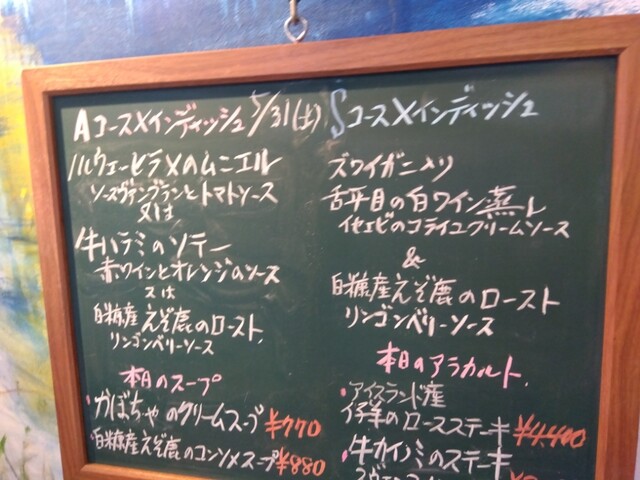 Aコースメインディッシュ 5/31(土)
ノルウェーヒラメのムニエル
ソースヴァンブランとトマトソース
又は
牛ハラミのソテー
赤ワインとオレンジのソース
又は
白糠産えぞ鹿のロースト
リンゴンベリーソース
本日のスープ
かぼちゃのクリームスープ ¥770
白糠産えぞ鹿のコンソメスープ ¥880
Sコースメインディッシュ
ズワイガニ入り
舌平目の白ワイン蒸し
イセエビのコライユクリームソース
&
白糠産えぞ鹿のロースト
リンゴンベリーソース
本日のアラカルト
アイスランド産
仔羊のロースステーキ ¥4,400
牛カイノミのステーキ